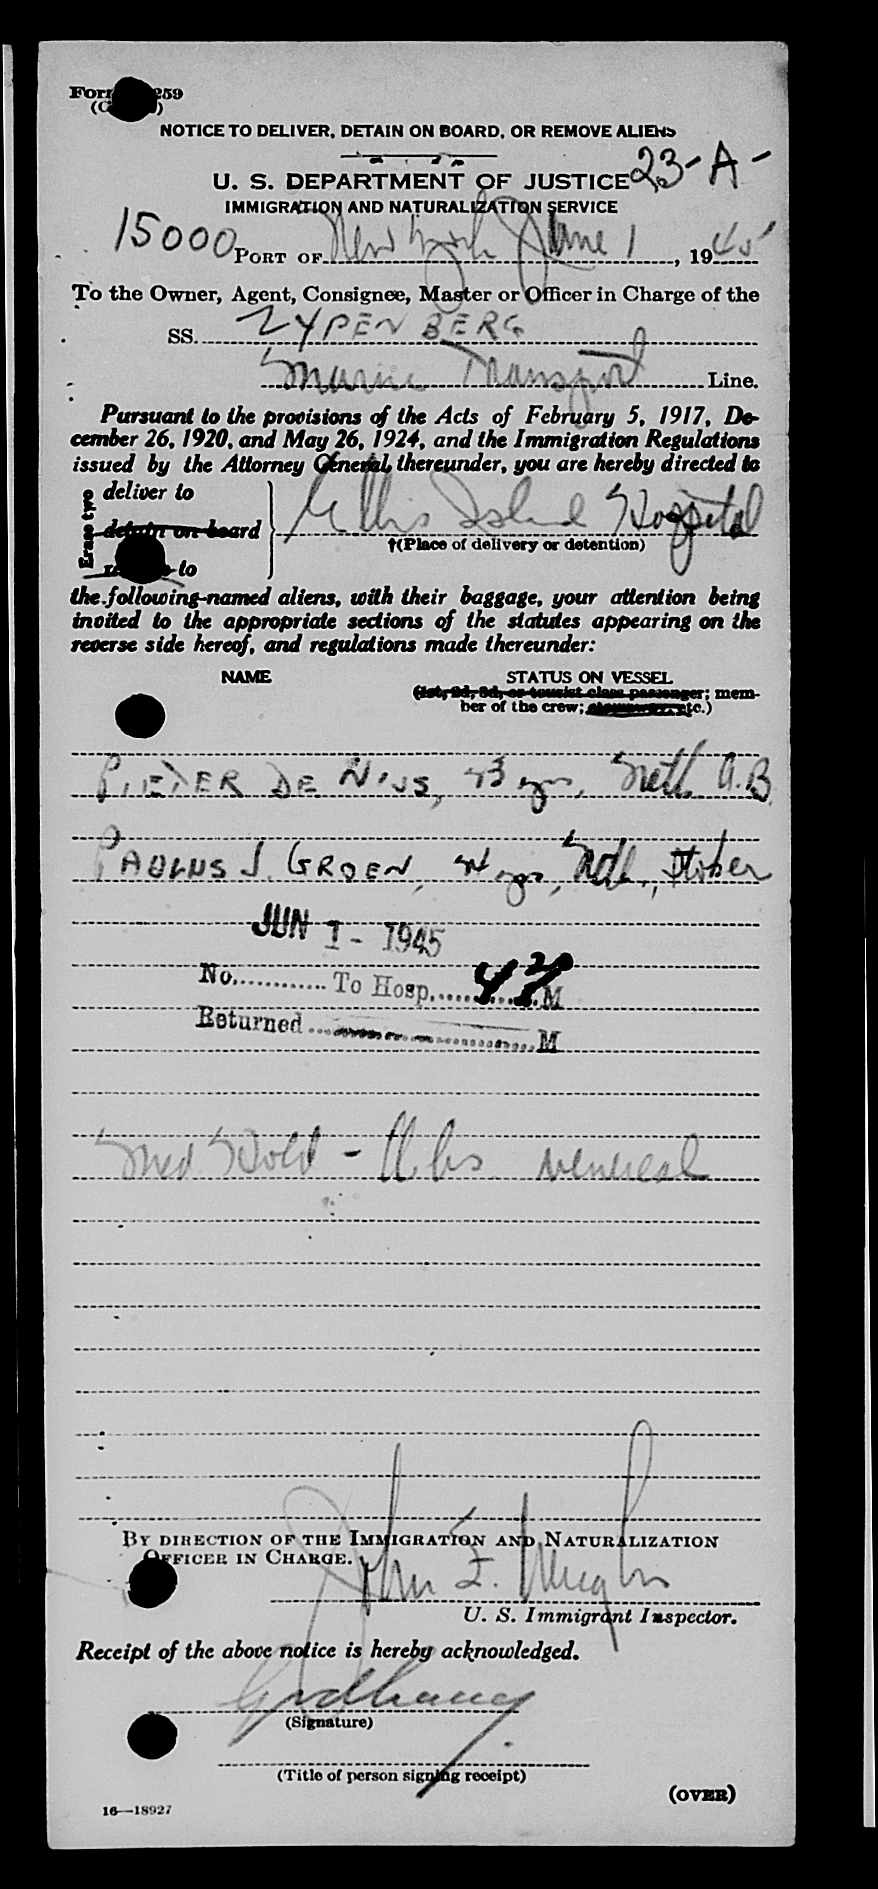 Form 259
NOTICE TO DELIVER, DETAIN ON BOARD, OR REMOVE ALIENS
23-A-
U. S. DEPARTMENT OF JUSTICE
IMMIGRATION AND NATURALIZATION SERVICE
15000
PORT OF New York June 1, 1945
To the Owner, Agent, Consignee, Master or Officer in Charge of the
SS. ZYPENBERG
Marine Transport Line.
Pursuant to the provisions of the Acts of February 5, 1917, De-
cember 26, 1920, and May 26, 1924, and the Immigration Regulations
issued by the Attorney General, thereunder, you are hereby directed to
Erase two
deliver to
detain on board
to
Ellis Island Hospital
†(Place of delivery or detention)
the following-named aliens, with their baggage, your attention being
invited to the appropriate sections of the statutes appearing on the
reverse side hereof, and regulations made thereunder:
NAME STATUS ON VESSEL
(1st, 2d, 3d, or tourist class passenger; mem-
ber of the crew; etc.)
PIETER DE NIJS, yrs, Neth A.B.
PAULUS J. GROEN, yrs, Neth., Stoker
JUN 1 - 1945
No............ To Hosp. M
Returned M
Med Hold - Obs. venereal
BY DIRECTION OF THE IMMIGRATION AND NATURALIZATION
OFFICER IN CHARGE.
John
U. S. Immigrant Inspector.
Receipt of the above notice is hereby acknowledged.
(Signature)
(Title of person signing receipt)
(OVER)
16—18927